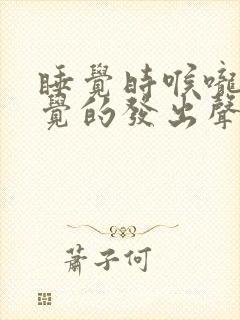 睡覺時喉嚨
覺的發出聲
蕭子何